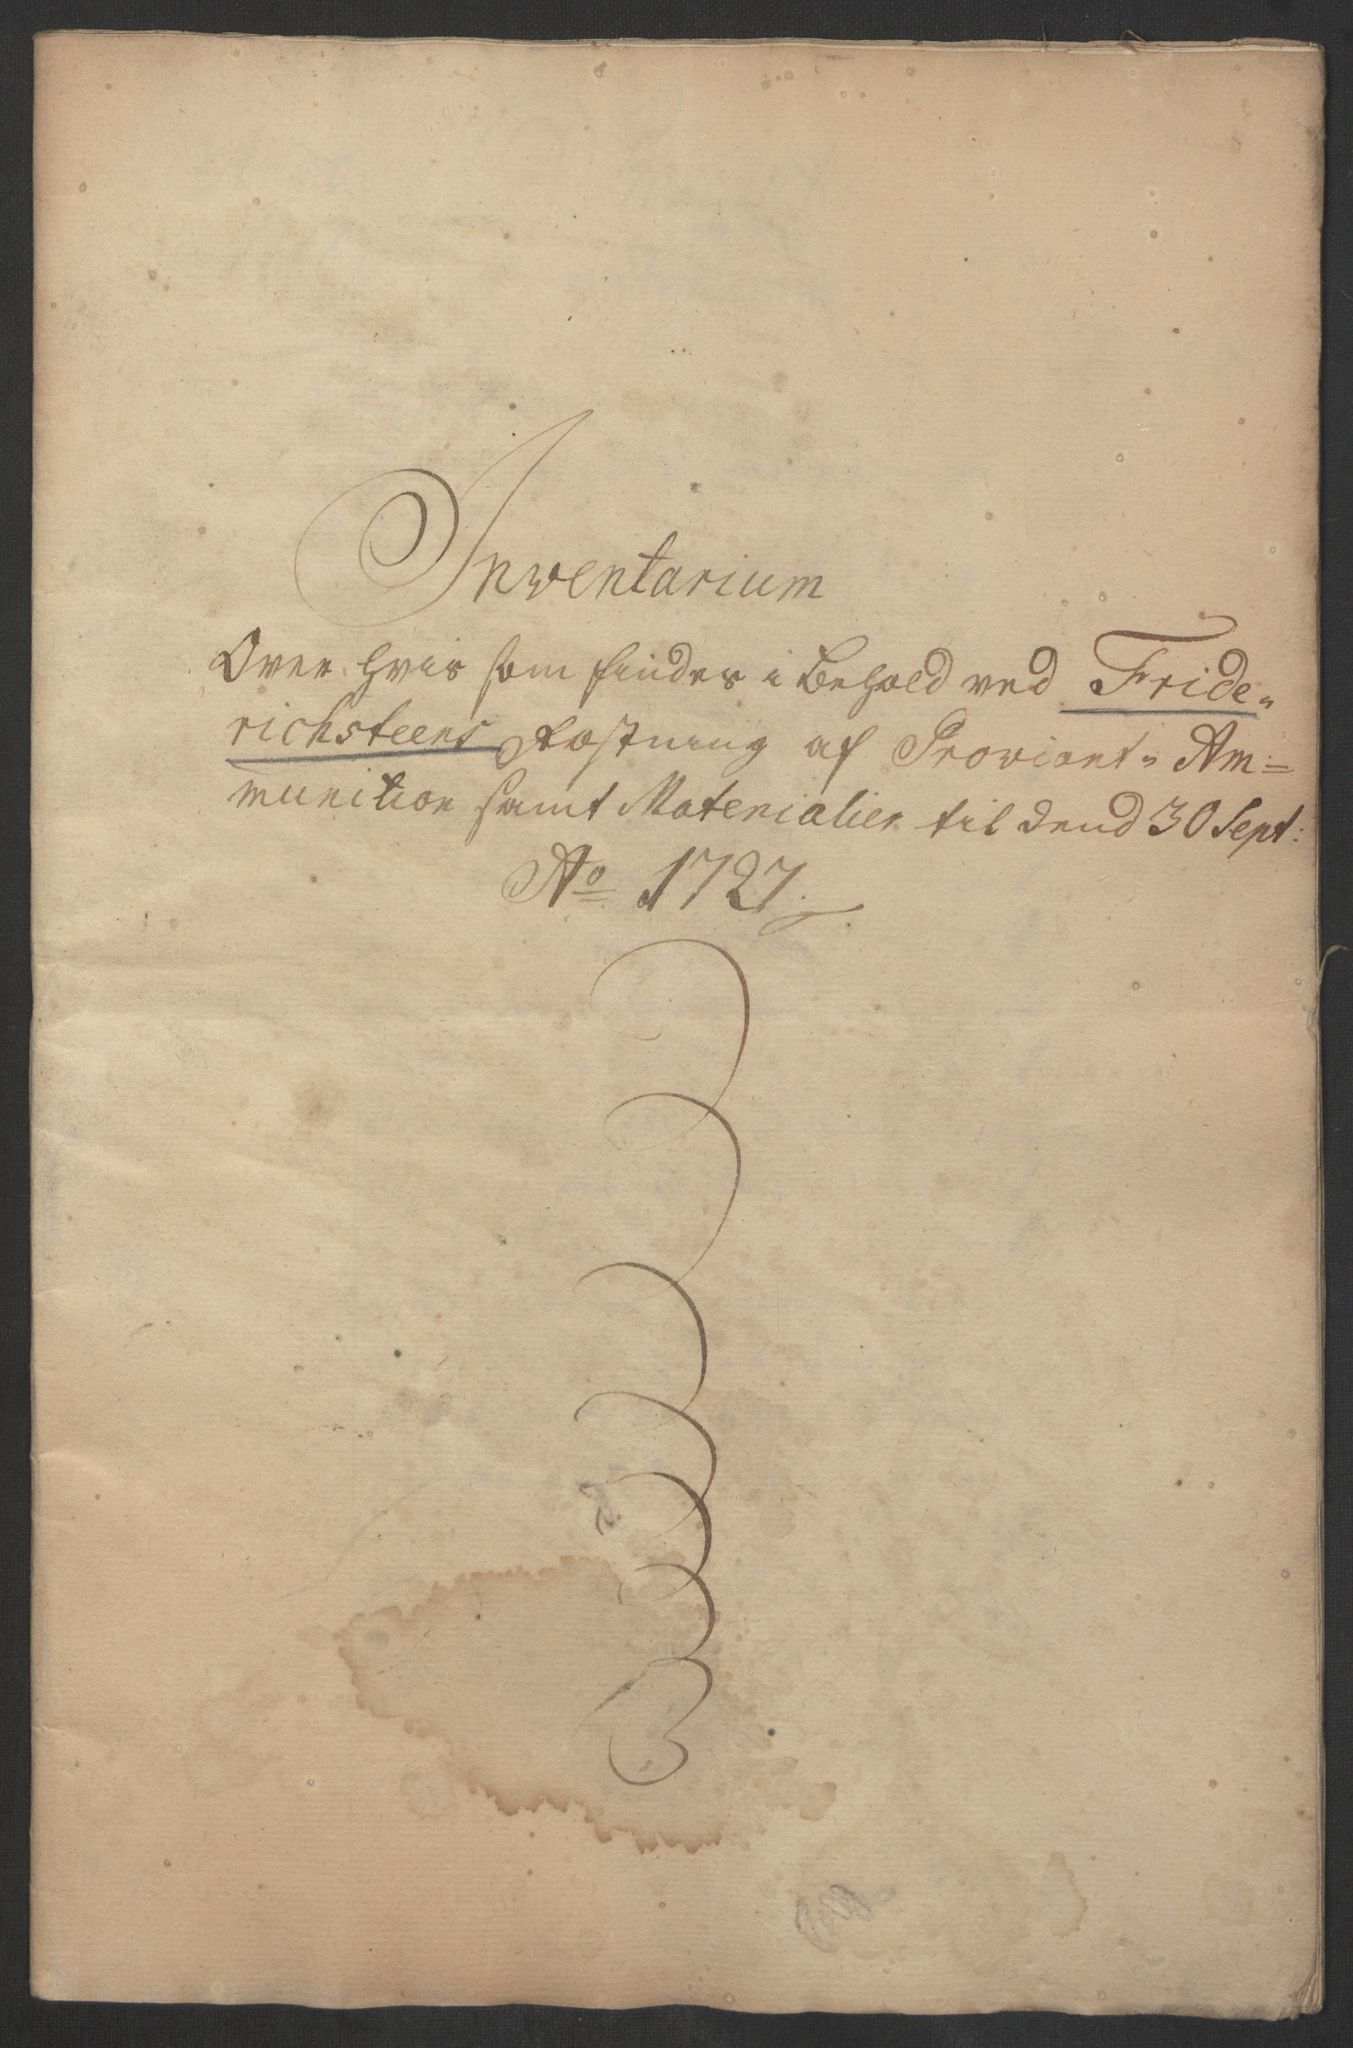 Inventarium
Over hvis som findes i behold ved Fride„
richsteens Fæstning af Proviant„ Am=
munition samt Materialier til dend 30 Sept:
Ao 1727.